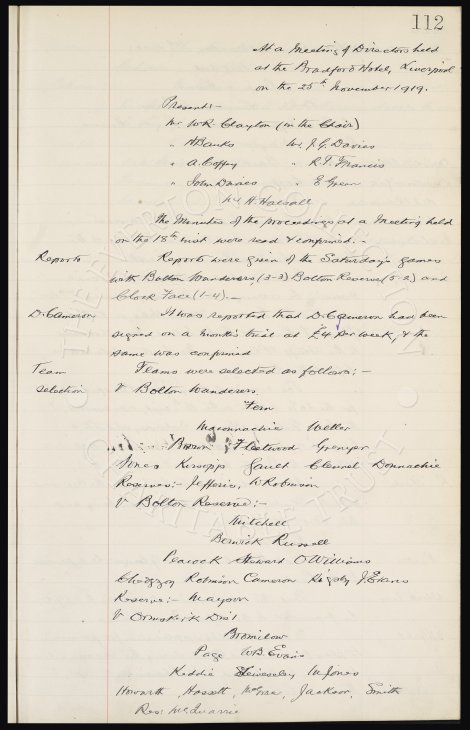 112
At a Meeting of Directors held
at the Bradford Hotel, Liverpool
on the 25th November 1919.
Present:-
Mr W.R. Clayton (in the Chair)
" A Banks Mr. J.G. Davies
" A. Coffey " R.T. Francis
" John Davies " E Green
Mr H. Halsall
The Minutes of the proceedings at a Meeting held
on the 18th inst were read & confirmed.-
Reports Reports were given of the Saturday's games
with Bolton Wanderers (3-3) Bolton Reserve (5-2) and
Clock Face (1-4).-
D. Cameron. It was reported that D. Cameron had been
signed on a month's trial at £4 per week, & the
same was confirmed
Team Teams were selected as follows:-
selection V Bolton Wanderers
Fern
Maconnachie Weller
Brown Fleetwood Grenyer
Jones Kirsopp Gault Clennel Donnachie
Reserves:- Jefferis, W Robinson
V Bolton Reserve:-
Mitchell
Berwick Russell
Peacock Stewart O Williams
Chedgzoy Robinson Cameron Rigsby J. Evans
Reserve:- Mayson
V Ormskirk Dist
Bromilow
Page W.B. Evans
Keddie W Jones
Howarth, Hassett, Jackson, Smith
Res: McQuarrie
THE EVERTON COLLECTION
CHARITABLE TRUST